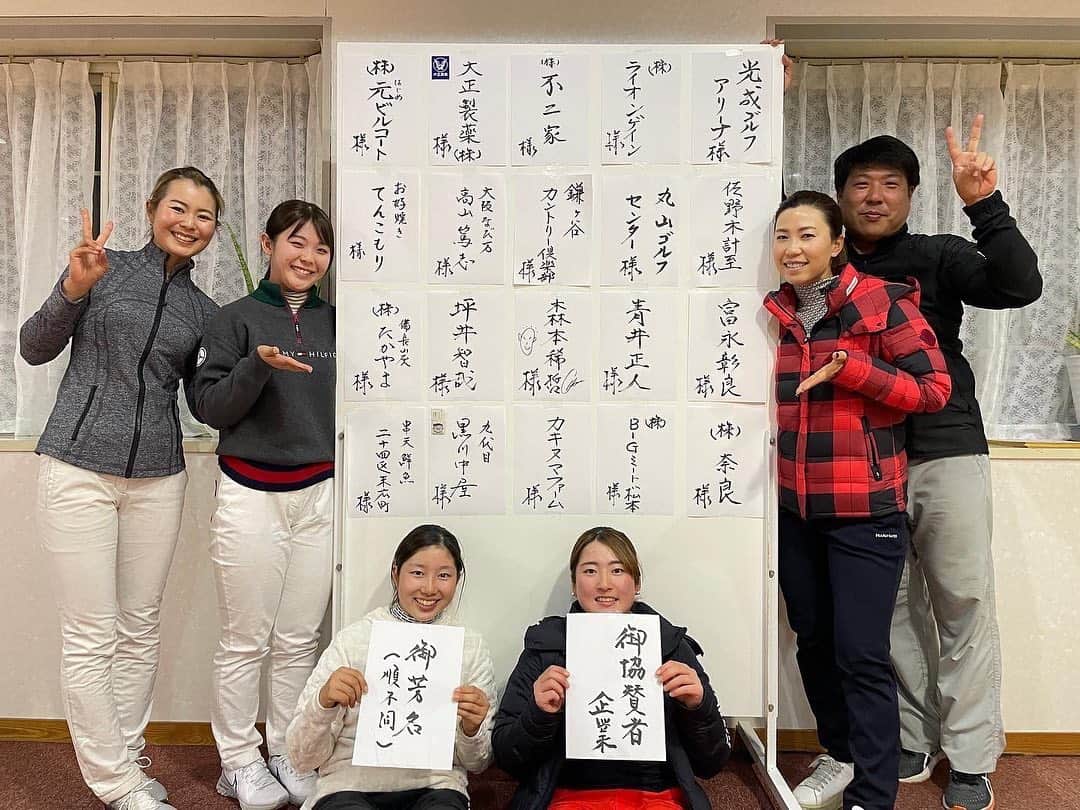 光成ゴルフ
アリーナ様
(株)
ライオンゲイン
様
(株)
不二家
様
大正製薬(株)
様
(株)元ビルコート
はじめ
様
佐野木計至
様
丸山ゴルフ
センター様
鎌ヶ谷
カントリー倶楽部
様
大阪なび万
高山篤志
様
お好焼き
てんこもり
様
富永彰良
様
青井正人
様
森本稀哲
様
坪井智哉
様
備長山炎
(株)たかやま
様
(株)奈良
様
(株)
BIGミート松本
様
カキヌマファーム
様
九代目
黒川中屋
様
串天鮮魚
二十四区末広町
様
MY HILFIG
御芳名
(順不同)
御協賛者
企業